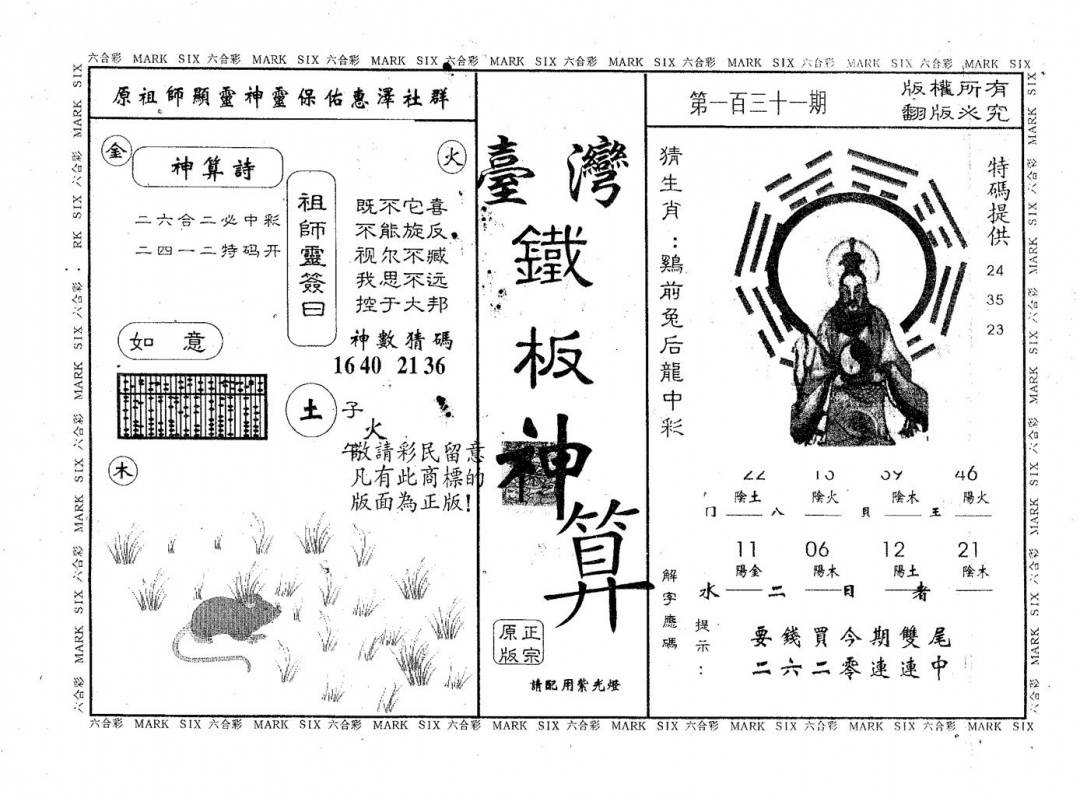 六合彩 MARK SIX 六合彩 MARK SIX 六合彩 MARK SIX 六合彩 MARK SIX 六合彩 MARK SIX 六合彩 MARK SIX 六合彩 MARK SIX 六合彩 MARK SIX
原祖師顯靈神靈保佑惠澤社群
金
火
神算詩
二六合二必中彩
二四一二特码开
祖師靈簽曰
既不它喜
不能旋反
视尔不臧
我思不远
控于大邦
神數猜碼
16 40 21 36
如意
土
子
火
午
敬請彩民留意
凡有此商標的
版面為正版!
木
臺灣
鐵
板
神
算
正宗
原版
請配用紫光燈
第一百三十一期
版權所有
翻版必究
猜生肖：鷄前兔后龍中彩
特碼提供
24
35
23
46
陰土 陰火 陰木 陽火
八 貝 王
11 06 12 21
陽金 陽木 陽土 陰木
水 二 日 者
解字應碼
提示：
要錢買今期雙尾
二六二零連連中
六合彩 MARK SIX 六合彩 MARK SIX 六合彩 MARK SIX 六合彩 MARK SIX 六合彩 MARK SIX 六合彩 MARK SIX 六合彩 MARK SIX 六合彩 MARK SIX